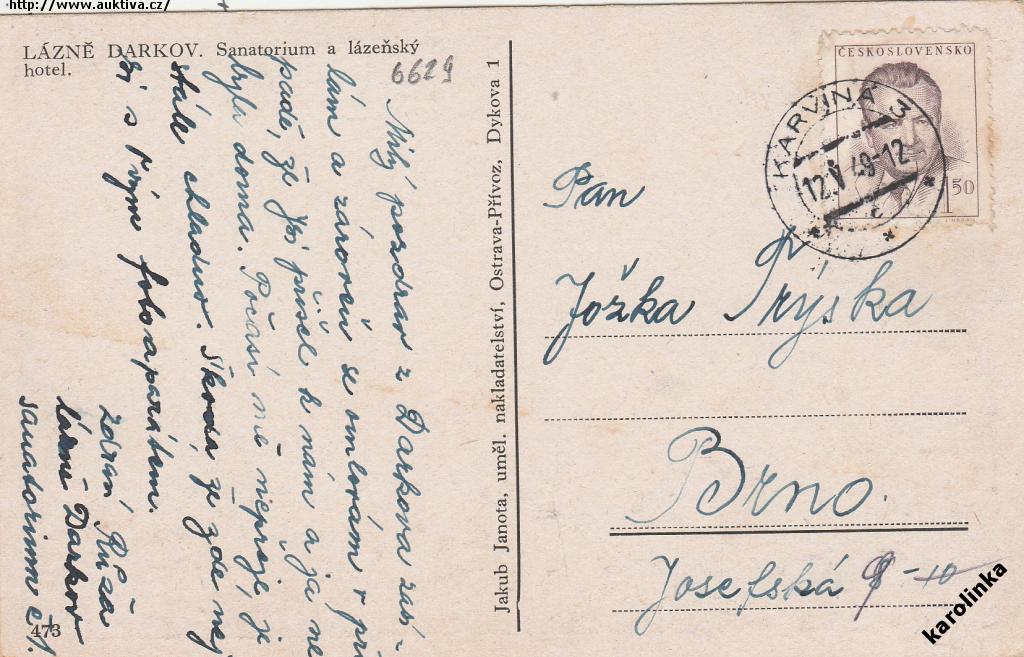 http://www.auktiva.cz/
LÁZNĚ DARKOV. Sanatorium a lázeňský
hotel.
6629
Milý pozdrav z Darkova zasí-
lám a zároveň se omlouvám v pří
padě, že jsi přišel k nám a já ne
byla doma. Počasí mě nepřeje, je
stále chladno. Škoda, že zde nej
si s svým fotoaparátem.
zdraví Růža
lázně Darkov
sanatorium č 1.
473
Jakub Janota, uměl. nakladatelství, Ostrava-Přívoz, Dykova 1
ČESKOSLOVENSKO
1.50
KARVINÁ 3
12.V 49-12
Pan
Jožka Trýska
Brno.
Josefská 9-10
karolinka